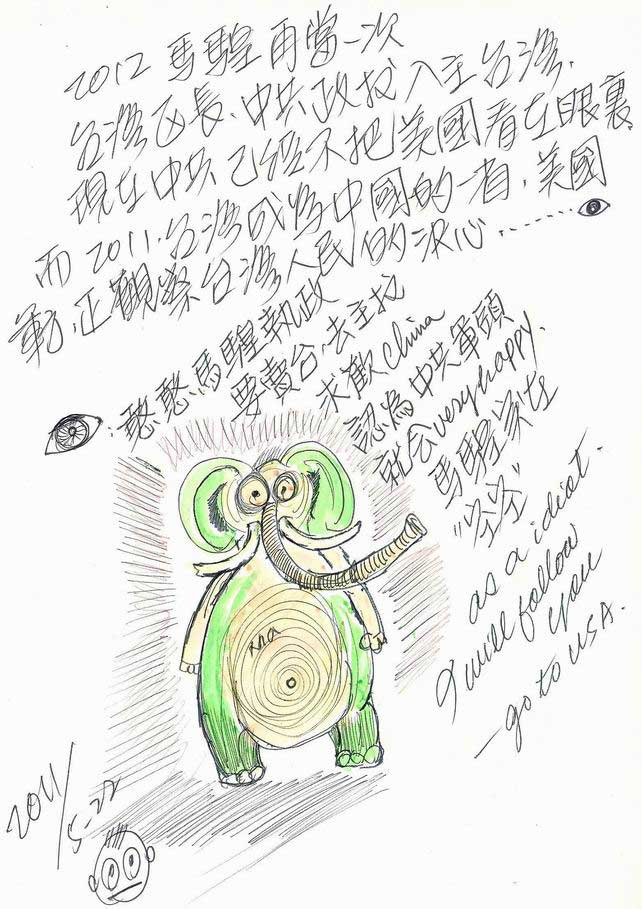 2012 馬騜再當一次
台灣區長、中共政权入主台灣.
現在中共已經不把美國看在眼裏
而2011.台灣成為中國的一省,美國
動.正觀察台灣人民的決心......
憨憨馬騜執政
要賣台.去主权
求歡China
認為中共軍頭
就会very happy.
馬騜实在
as a idiot.
I will follow
you
—go to USA.
2011/5-22